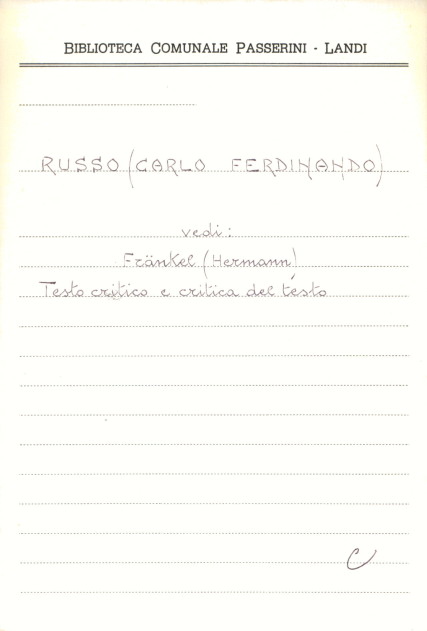 BIBLIOTECA COMUNALE PASSERINI - LANDI
RUSSO (CARLO FERDINANDO)
vedi:
Fränkel (Hermann)
Testo critico e critica del testo
C